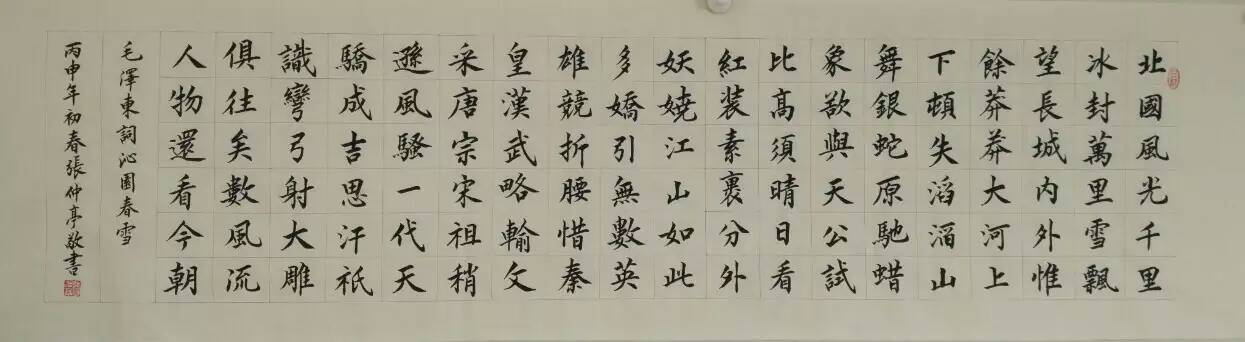 北國風光千里
冰封萬里雪飄
望長城內外惟
餘莽莽大河上
下頓失滔滔山
舞銀蛇原馳蜡
象欲與天公試
比高須晴日看
紅裝素裹分外
妖嬈江山如此
多嬌引無數英
雄競折腰惜秦
皇漢武略輸文
采唐宗宋祖稍
遜風騷一代天
驕成吉思汗祇
識彎弓射大雕
俱往矣數風流
人物還看今朝
毛澤東詞沁園春雪
丙申年初春張仲亭敬書